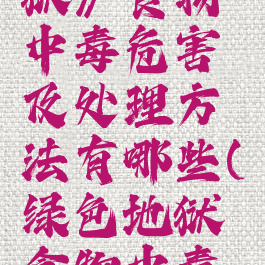 狱》食物
中毒危害
及处理方
法有哪些(
绿色地狱
食物中毒